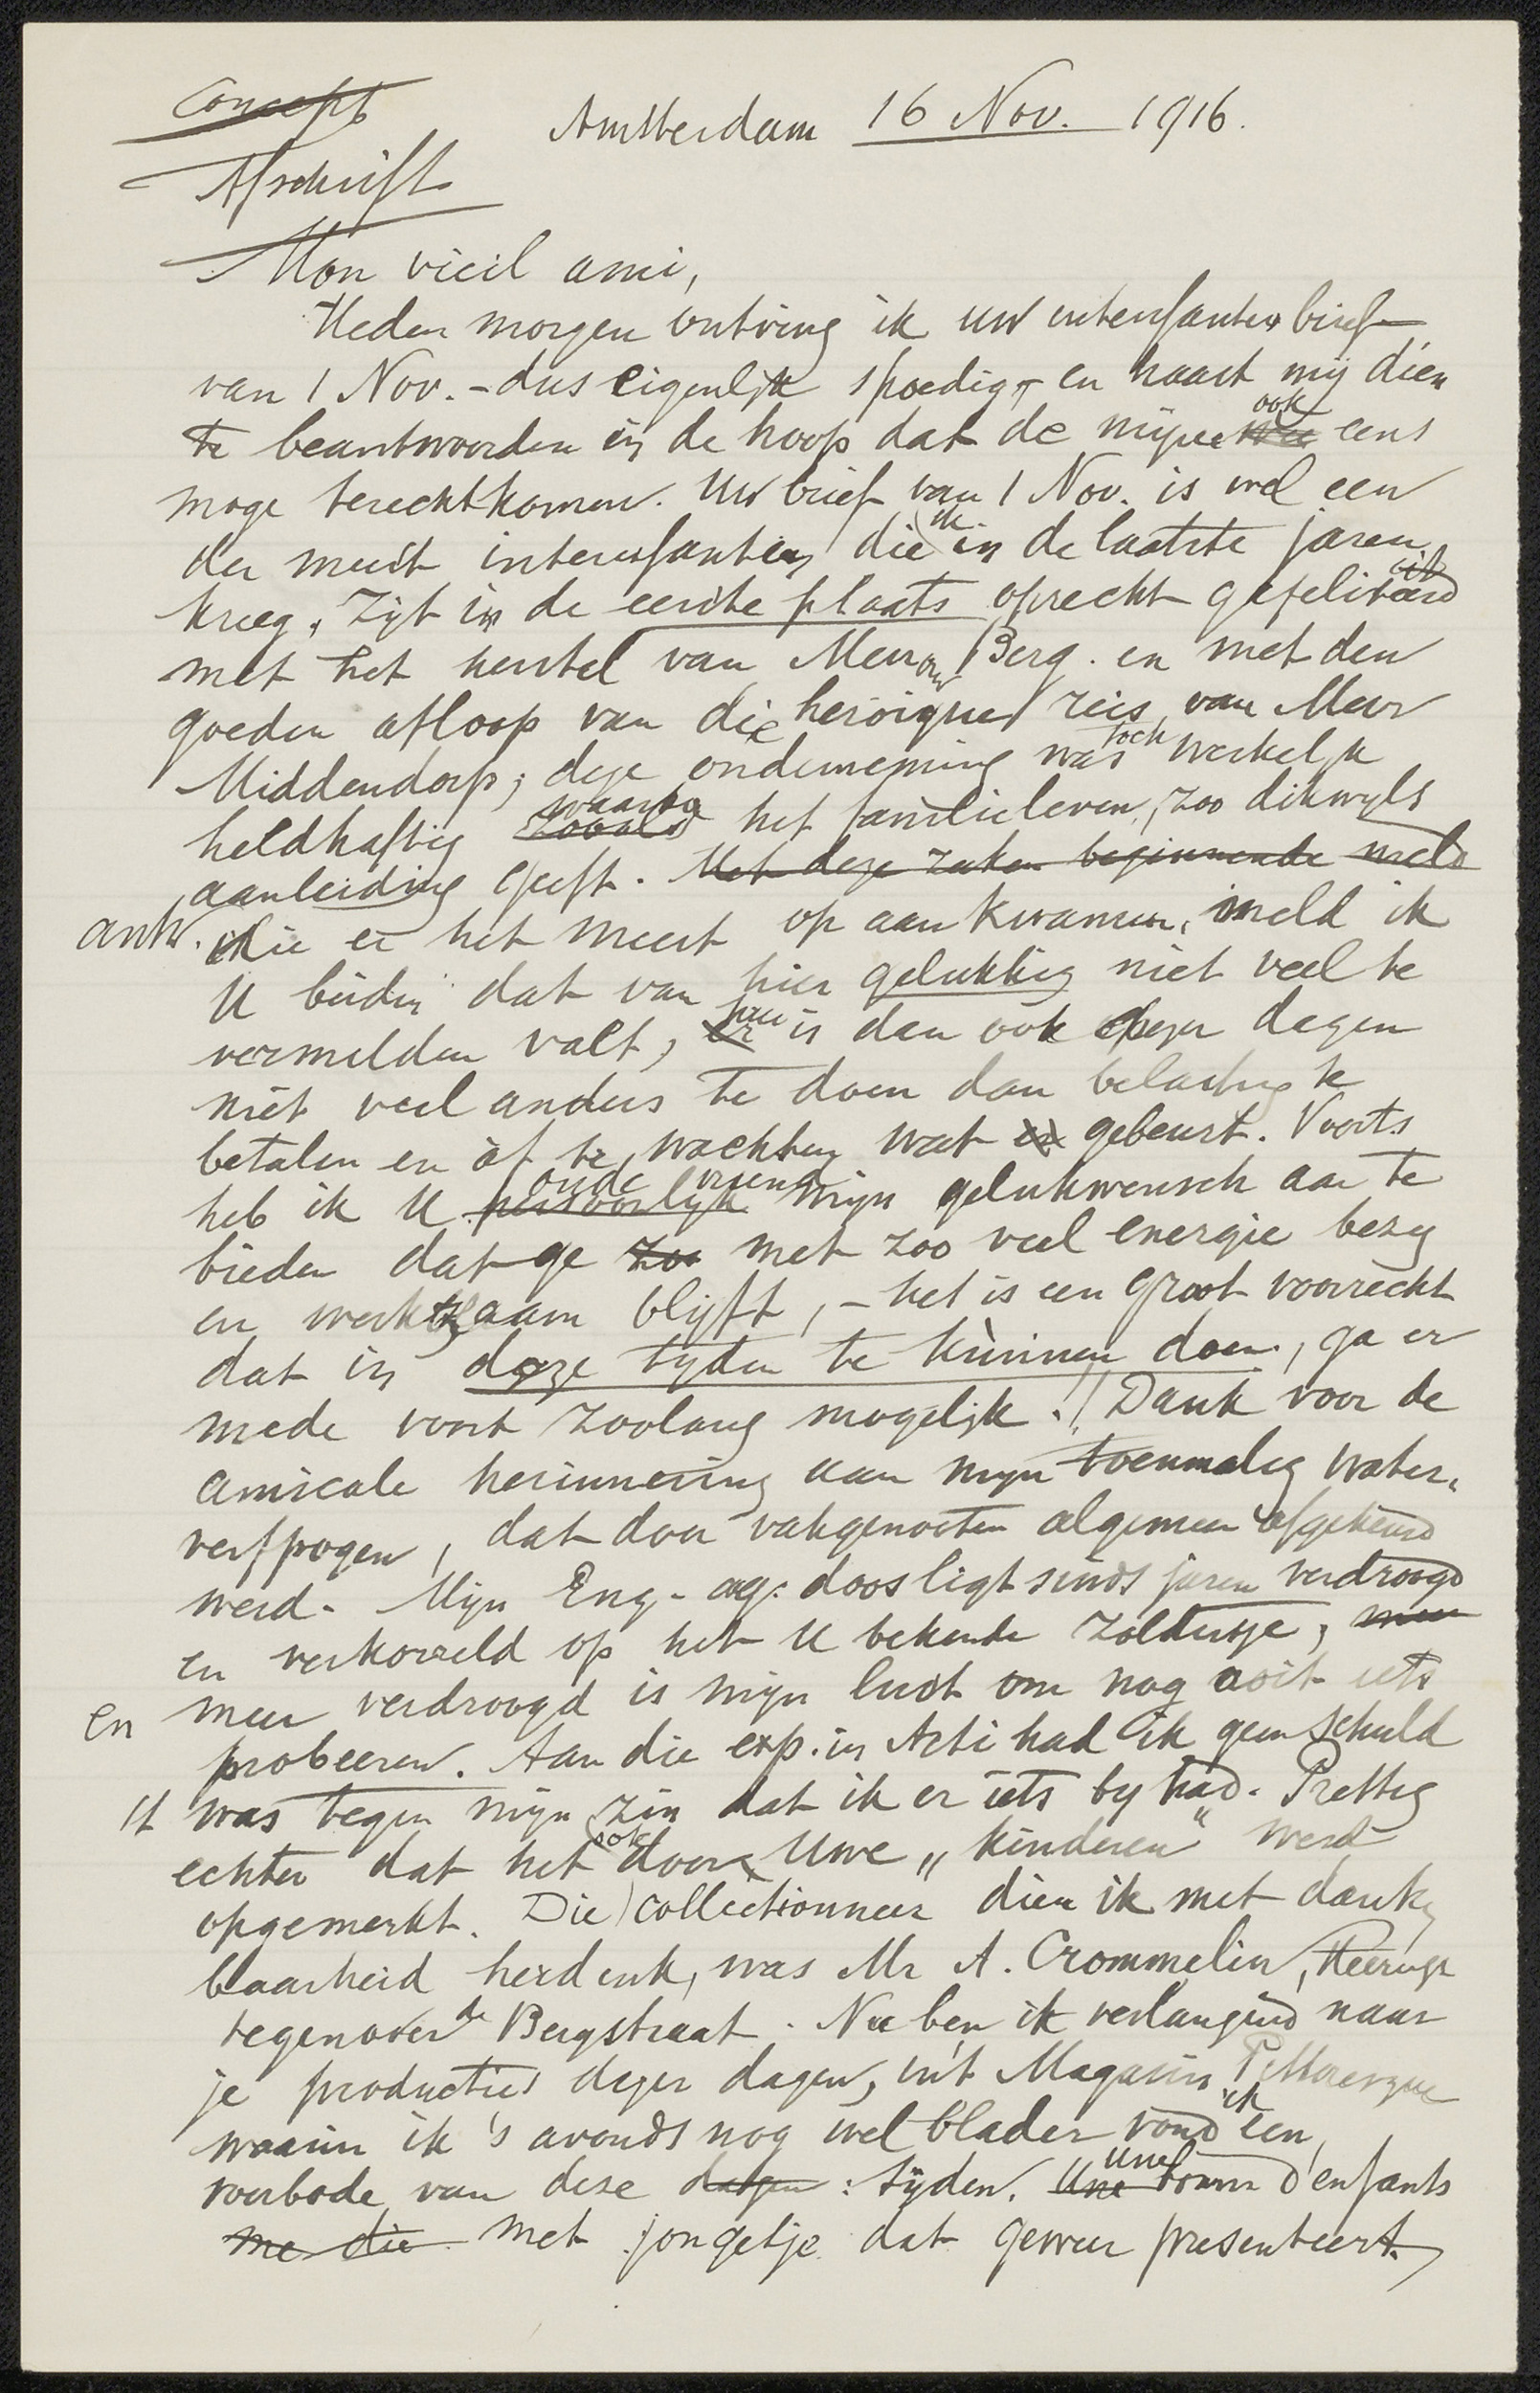 Concept
Amsterdam 16 Nov. 1916.
Afschrift
Mon vieil ami,
Heden morgen ontving ik uw interessanten brief
van 1 Nov. - dus eigenlijk spoedig, - en haast mij dien
te beantwoorden in de hoop dat de mijne ook eens
moge terechtkomen. Uw brief van 1 Nov. is wel een
der meest interessanten die ik in de laatste jaren
kreeg. Zijt in de eerste plaats oprecht gefeliciteerd
met het herstel van Mevrouw Berg. en met den
goeden afloop van die heroïque reis van Mevr
Middendorp; deze onderneming was toch werkelijk
heldhaftig zooals waartoe het familieleven, zoo dikwyls
aanleiding geeft. Met deze zaken beginnende meld
antw. die er het meest op aan kwamen, meld ik
U beiden dat van hier gelukkig niet veel te
vermelden valt, er is dan ook dezer dagen
niet veel anders te doen dan belasting te
betalen en àf te wachten wat er gebeurt. Voorts
heb ik U persoonlijk oude vriend mijn gelukwensch aan te
bieden dat ge zoo met zoo veel energie bezig
en werkzaam blijft, - het is een groot voorrecht
dat in deze tyden te kùnnen doen, ga er
mede voort zoolang mogelijk!! Dank voor de
amicale herinnering aan mijn toenmalig water-
verfpogen, dat door vakgenooten algemeen afgekeurd
werd. Mijn Eng. aq: doos ligt sinds jaren verdroogd
en verkorreld op het U bekende zoldertje,
en meer verdroogd is mijn lust om nog ooit iets
probeeren. Aan die exp. in Arti had ik geen schuld
't was tegen mijn zin dat ik er iets by had. Prettig
echter dat het ook door Uwe „kinderen" werd
opgemerkt. Die collectionneur dien ik met dank-
baarheid herdenk, was Mr A. Crommelin, Heerengr
tegenover de Bergstraat. Nu ben ik verlangend naar
je producties dezer dagen, in't Magasin Pittoresque
waarin ik 's avonds nog wel blader vond ik een
voorbode van deze dagen: tijden. Une Une d'enfants
me die met jongetje dat geweer presenteert,